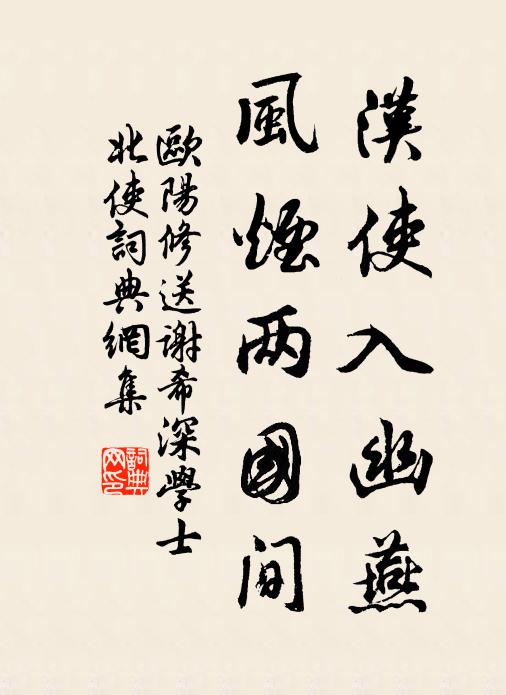 漢使入幽燕
風煙两國间
歐陽修送謝希深學士
北使詞典網集
詞典网印